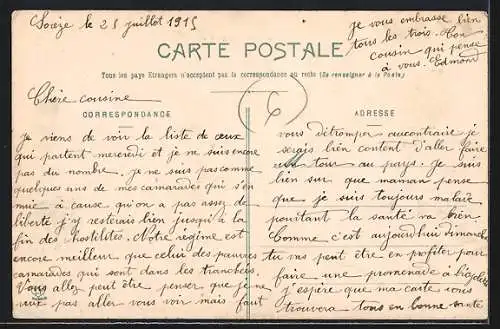 Sorèze le 25 juillet 1915
CARTE POSTALE
Tous les pays Etrangers n'acceptent pas la correspondance au recto (Se renseigner à la Poste)
Chère cousine
CORRESPONDANCE
Je viens de voir la liste de ceux
qui partent mercredi et je ne suis encore
pas du nombre. je ne suis pas comme
quelques uns de mes camarades qui s'en
nuie à cause qu'on a pas assez de
liberté j'y resterais bien jusqu'à la
fin des hostilités. Notre régime est
encore meilleur que celui des pauvres
camarades qui sont dans les tranchées.
Vous allez peut être penser que je ne
veux pas aller vous voir mais faut
ADRESSE
vous détromper aucontraire je
serais bien content d'aller faire
un tour au pays. Je suis
bien sur que maman pense
que je suis toujours malade
pourtant la santé va bien.
Comme c'est aujourd'hui dimanche
tu vas peut être en profiter pour
faire une promenade à bicyclette
j'espère que ma carte vous
trouvera tous en bonne santé
je vous embrasse bien
tous les trois. Ton
cousin qui pense
à vous. Edmond
6